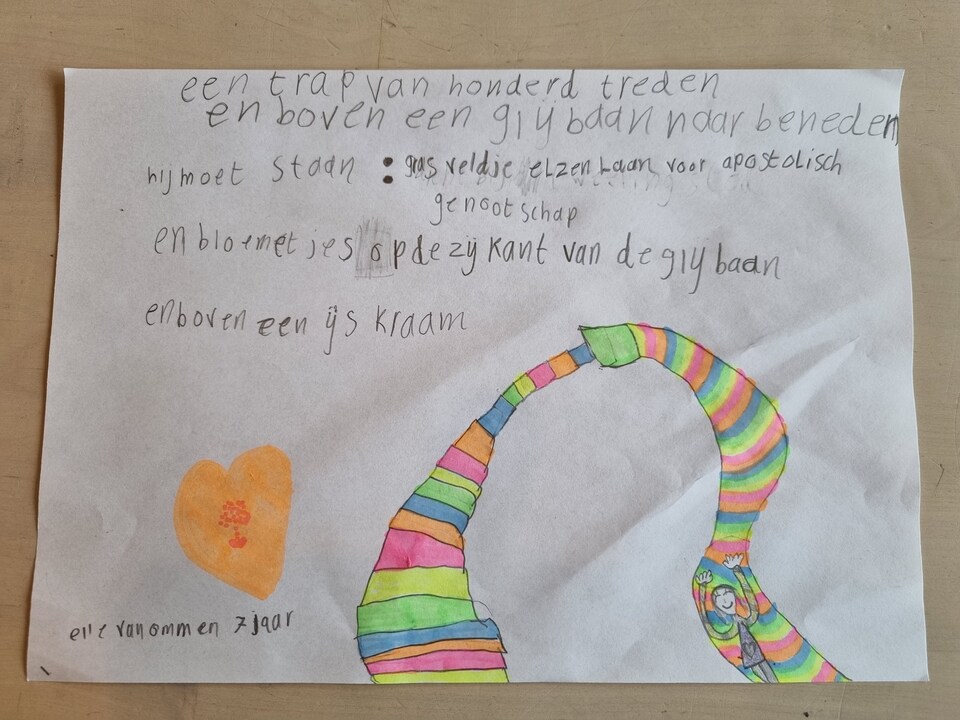 een trap van honderd treden
en boven een glijbaan naar beneden
hij moet staan : gras veldje elzen laan voor apostolisch
genootschap
en bloemetjes op de zijkant van de glijbaan
en boven een ijs kraam
van ommen 7 jaar